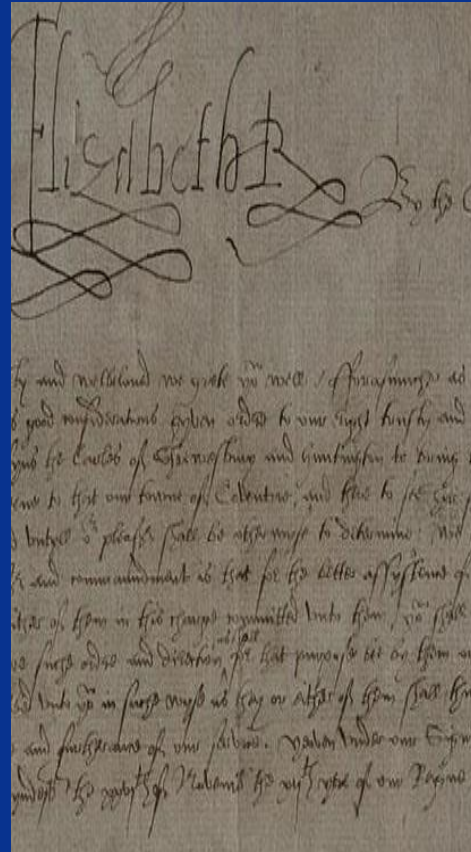 Elizabeth R
By the
and welbeloved we grete you well / Forasmuche as
good consideracions geven order to our right trusty and
the Earles of Shrewsbury and Huntington to bring
to that our towne of Coventrie, and there to see
untyll o^r pleas^r shall be otherwyse to determine. We
and commaundement is that for the better assystence of
of them in this charge commytted unto them, you shall
suche order and direction as shall for that purpose be by them or
unto you in suche wyse as they or ether of them shall
and furtherance of our servyce. Yeven under our Signe
the of Novemb^r the yere of our Reigne